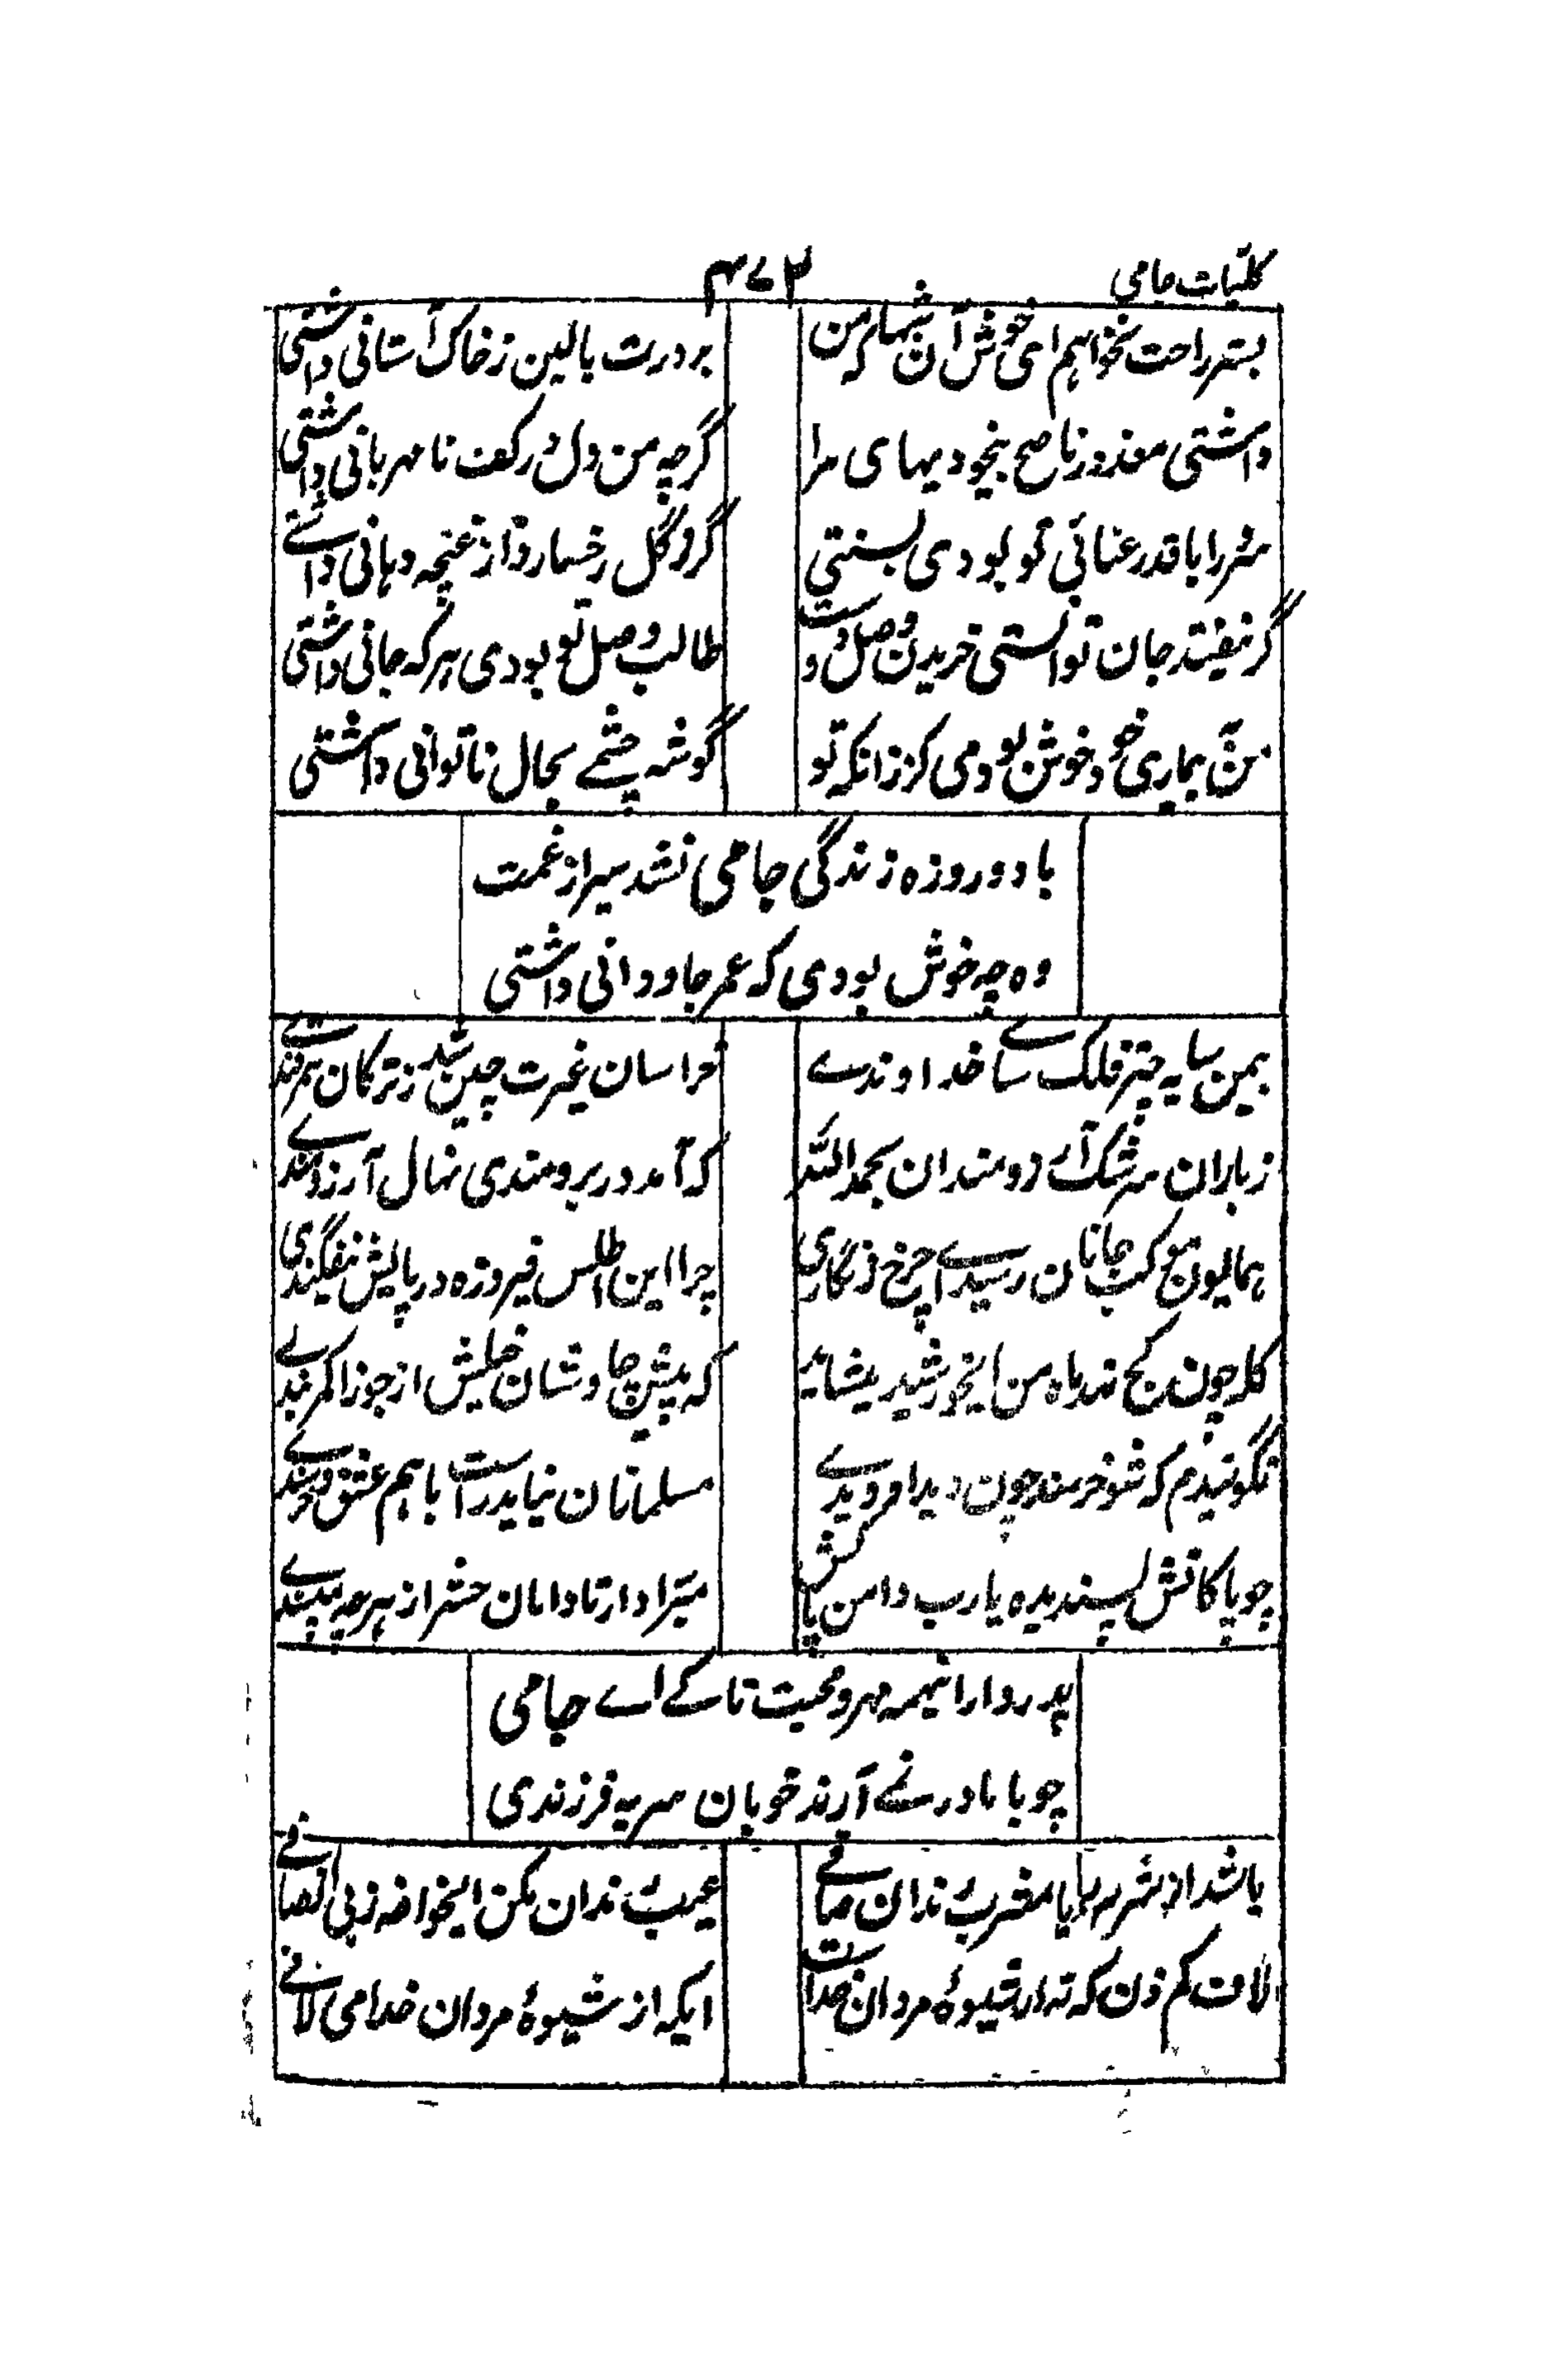 کلیات جامی
۴۷۲
بستر راحت نخواهم ای خوش آن شبها که من
بر درت بالین ز خاک آستانی داشتی
داشتی معذور ناصح بیخودیهای مرا
گرچه من دل در کف نامهربانی داشتی
سرو را با قد رعنائی تو بودی نسبتی
گر و گل رخسار و از غنچه دهانی داشتے
گر نیفتد جان توانستی خریدن وصل دوست
طالب وصل تو بودی هر که جانی داشتی
من به بیماری خود خوش بودمی کز زانکه تو
گوشه چشمے بحال ناتوانی داشتی
با دو روزه زندگی جامی نشد سیر از غمت
وه چه خوش بودی که عمر جاودانی داشتی
بیمن سایه چتر فلک ساے خداوندے
خراسان غیرت چین شد ز ترکان سمرقندے
ز باران سرشک آے دردمندان بحمد الله
که آمد در برومندی نهال آرزومندے
همایون موکب جانان رسید اے چرخ زنگاری
چرا این اطلس فیروزه در پایش نیفگندی
کله چون کج نهد ماه من ای خورشید میشاید
که پیش چاوشان خیلش از جوزا کمر بندے
نگوئیدم که شو خرسند چون دیدار او دیدے
مسلمانان نیاید راست با هم عشق و خرسندے
چو پاکانش پسندیده یارب دامن پاکش
مبرا دار تا دامان حشر از هر چه نپسندے
پدر وار اینهمه مهر و محبت تا کے اے جامی
چو با مادر نمے آرند خوبان سر به فرزندی
باشد از شرب ریا مشرب رندان صافے
عیب رندان مکن ایخواجه ز بی انصافے
لاف کم زن که نه از شیوهٔ مردان خداست
ایکه از شیوهٔ مردان خدا می لافے